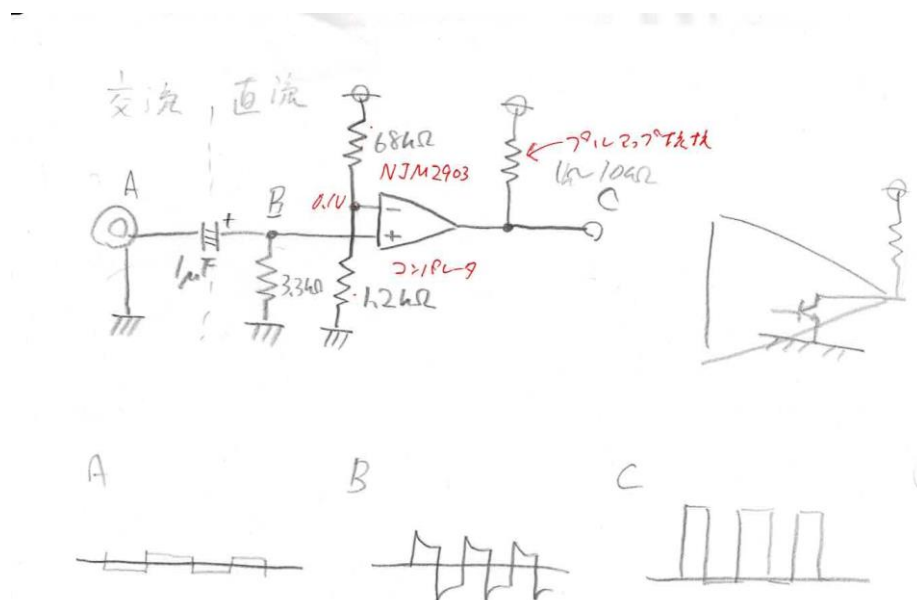 交流 , 直流
68kΩ
NJM2903
プルアップ抵抗
1k~10kΩ
A
B
0.1V
C
+
−
+
1μF
3.3kΩ
コンパレータ
1.2kΩ
A
B
C